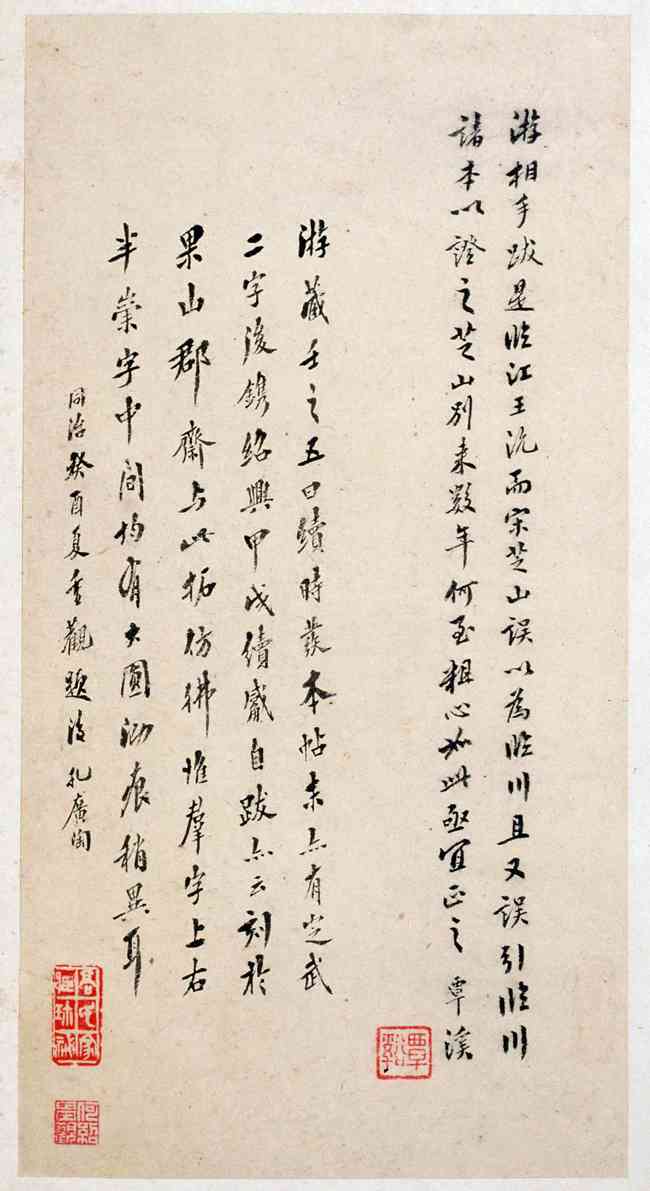 游相手跋是臨江王沇而宋芝山誤以為臨川且又誤引臨川
諸本以證之芝山別来數年何至粗心如此亟宜正之 覃溪
覃谿
游藏壬之五曰續時本帖末亦有定武
二字後鐫紹興甲戌續自跋亦云刻於
果山郡齋与此拓仿彿惟羣字上右
半崇字中間均有大圓泐痕稍異耳
同治癸酉夏重觀題後 孔廣陶